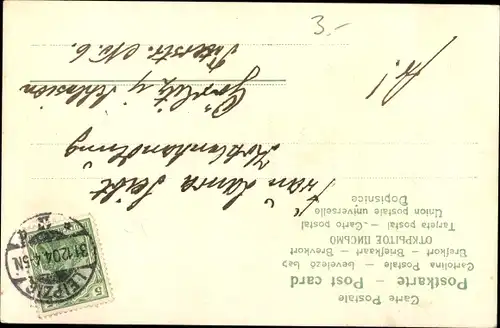 Carte Postale
Postkarte — Post card
Cartolina Postale — bevelező lap
Brefkort — Briefkaart — Brevkort
ОТКРЫТОЕ ПИСЬМО
Tarjeta postal — Carte postal
Union postale universelle
Dopisnice
LEIPZIG
31.12.04. 4-5N.
5
Frau Laura Seibt
Kohlenhandlung
Görlitz i/ Schlesien
No. 6.
3.-